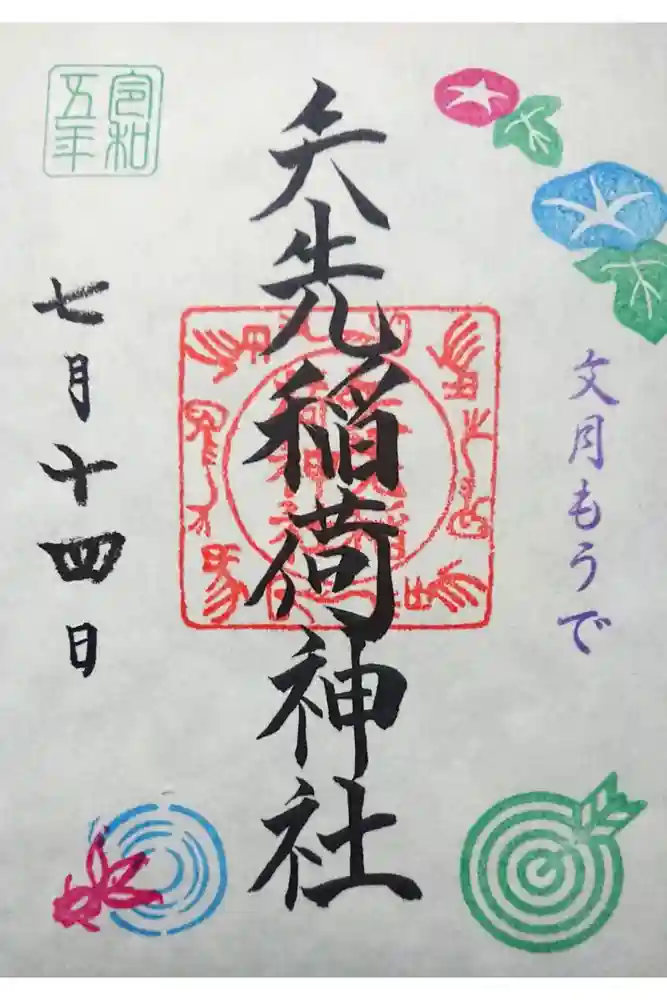 文月もうで
矢先稲荷神社
令和
五年
七月十四日